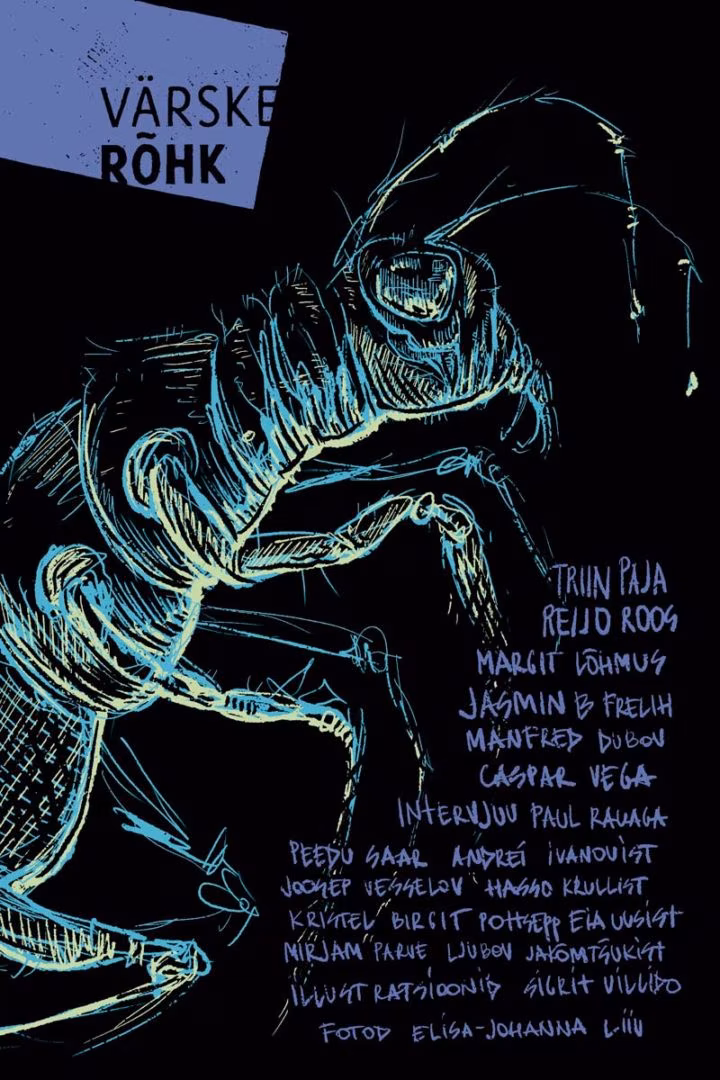 VÄRSKE
RÕHK
TRIIN PAJA
REIJO ROOS
MARGIT LÕHMUS
JASMIN B FRELIH
MANFRED DUBOV
CASPAR VEGA
INTERVJUU PAUL RAUAGA
PEEDU SAAR ANDREI IVANOVIST
JOOSEP VESSELOV HASSO KRULLIST
KRISTEL BIRGIT POTTSEPP EIA UUSIST
MIRJAM PARVE LJUBOV JAKÕMTŠUKIST
ILLUSTRATSIOONID SIGRIT VILLIDO
FOTOD ELISA-JOHANNA LIIV